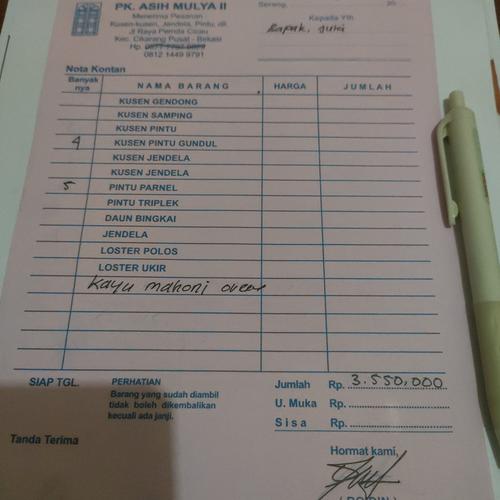 PK. ASIH MULYA II
Menerima Pesanan
Kusen-kusen, Jendela, Pintu, dll.
Jl Raya Pemda Cicau
Kec. Cikarang Pusat - Bekasi
Hp.
0812 1449 9791
Serang, 20
Kepada Yth
Bapak.
Nota Kontan
Banyak nya NAMA BARANG HARGA JUMLAH
KUSEN GENDONG
KUSEN SAMPING
KUSEN PINTU
4 KUSEN PINTU GUNDUL
KUSEN JENDELA
KUSEN JENDELA
5 PINTU PARNEL
PINTU TRIPLEK
DAUN BINGKAI
JENDELA
LOSTER POLOS
LOSTER UKIR
kayu mahoni
SIAP TGL.
PERHATIAN
Barang yang sudah diambil
tidak boleh dikembalikan
kecuali ada janji.
Jumlah Rp. 3.550,000
U. Muka Rp.
Sisa Rp.
Tanda Terima
Hormat kami,